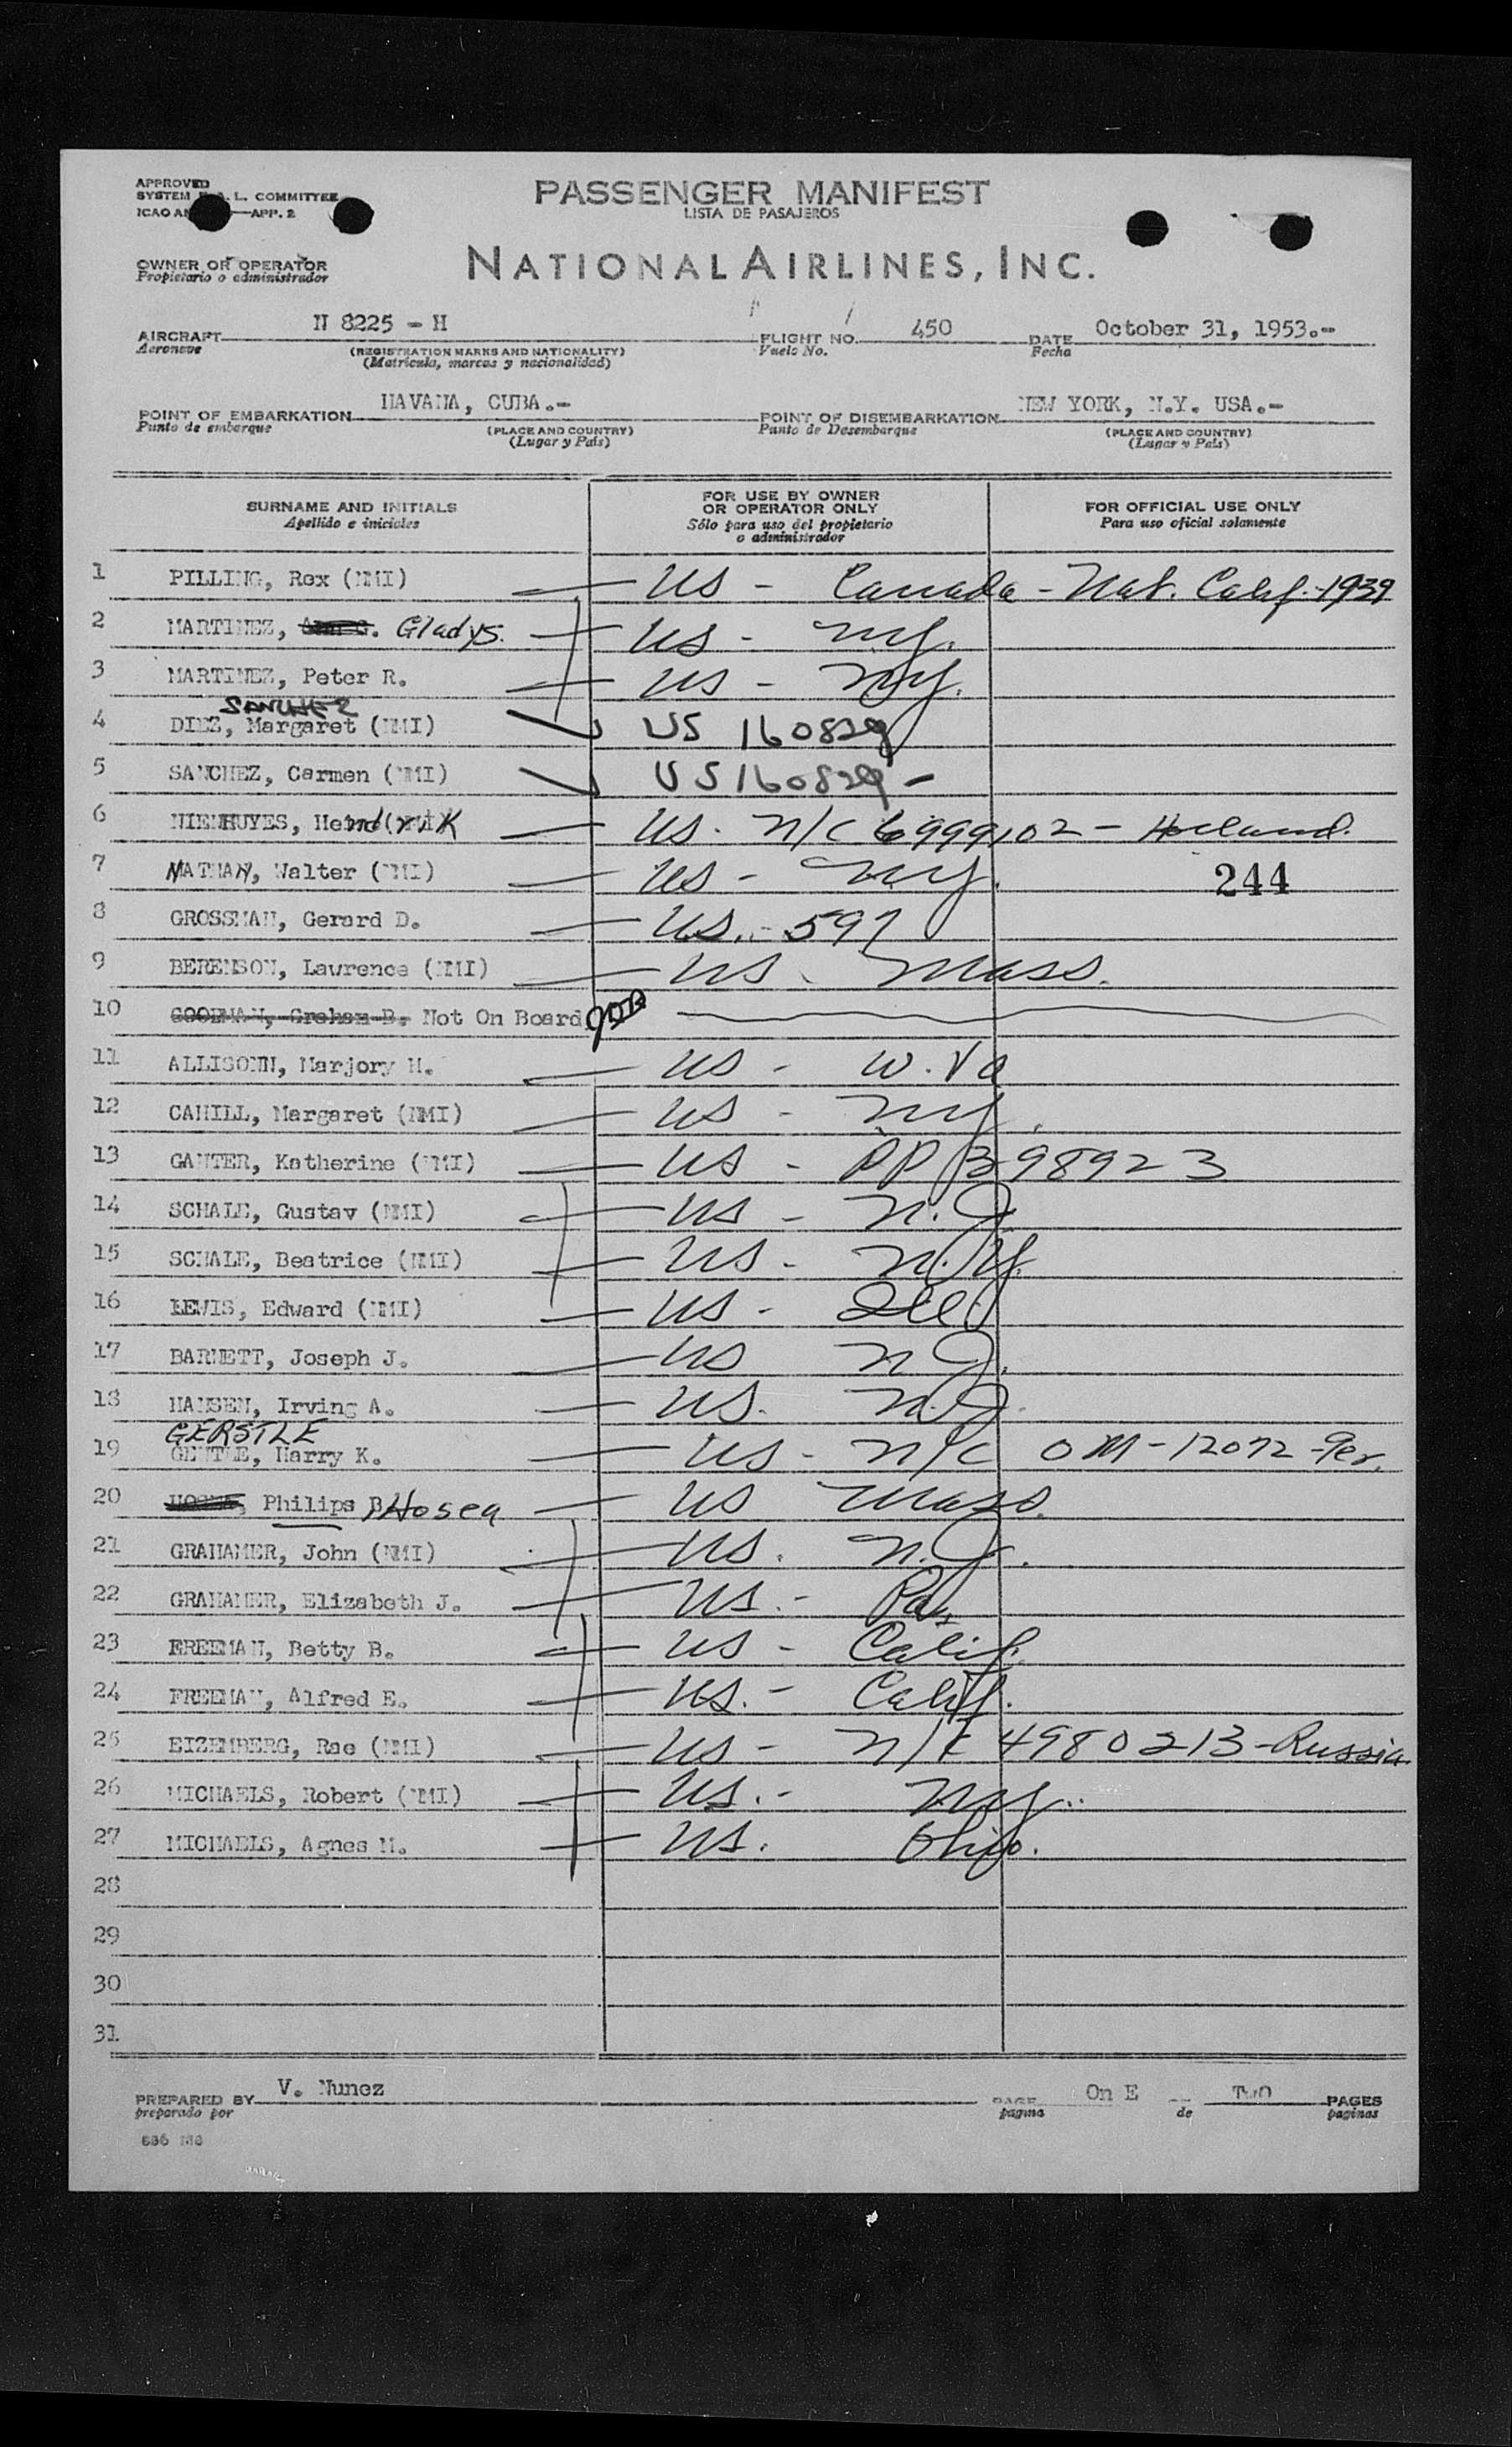 APPROVED
SYSTEM F.A.L. COMMITTEE
ICAO AN —APP. 2
PASSENGER MANIFEST
LISTA DE PASAJEROS
OWNER OR OPERATOR
Propietario o administrador
NATIONAL AIRLINES, INC.
AIRCRAFT N 8225 - H FLIGHT NO. 450 DATE October 31, 1953.-
Aeronave (REGISTRATION MARKS AND NATIONALITY) Vuelo No. Fecha
(Matricula, marcas y nacionalidad)
POINT OF EMBARKATION HAVANA, CUBA.- POINT OF DISEMBARKATION NEW YORK, N.Y. USA.-
Punto de embarque (PLACE AND COUNTRY) Punto de Desembarque (PLACE AND COUNTRY)
(Lugar y País) (Lugar y País)
SURNAME AND INITIALS FOR USE BY OWNER OR OPERATOR ONLY FOR OFFICIAL USE ONLY
Apellido e iniciales Sólo para uso del propietario o administrador Para uso oficial solamente
1 PILLING, Rex (NMI) — US - Canada - Nat. Calif. 1939
2 MARTINEZ, Gladys. — US - NY.
3 MARTINEZ, Peter R. — US - NY.
SANCHEZ
4 DIEZ, Margaret (NMI) US 160829
5 SANCHEZ, Carmen (NMI) US 160829 -
6 NIENHUYES, Hendrik — US. N/C 6999102 - Holland.
7 NATHAN, Walter (NMI) — US - NY. 244
8 GROSSMAN, Gerard D. — US. - 597
9 BERENSON, Lawrence (NMI) — US. Mass.
10 GOODMAN, Graham B. Not On Board
11 ALLISONN, Marjory H. — US - W. Va
12 CAHILL, Margaret (NMI) — US - NY.
13 GANTER, Katherine (NMI) — US - PP 398923
14 SCHALE, Gustav (NMI) — US - N.J.
15 SCHALE, Beatrice (NMI) — US. - N.Y.
16 LEWIS, Edward (NMI) — US - Ill
17 BARNETT, Joseph J. — US NJ.
18 HANSEN, Irving A. — US. N.J.
GERSTLE
19 GENTLE, Harry K. — US - N/C OM-12072 - Ger.
20 Philips B Hosea — US Mass.
21 GRAHAMER, John (NMI) — US. N.J.
22 GRAHAMER, Elizabeth J. — US. - Pa.
23 FREEMAN, Betty B. — US - Calif.
24 FREEMAN, Alfred E. — US. - Calif.
25 EIZEMBERG, Rae (NMI) — US - N/C 4980213 - Russia.
26 MICHAELS, Robert (NMI) — US. - NY.
27 MICHAELS, Agnes M. — US. Ohio.
28
29
30
31
PREPARED BY V. Nunez PAGE On E Two PAGES
preparado por pagina de paginas